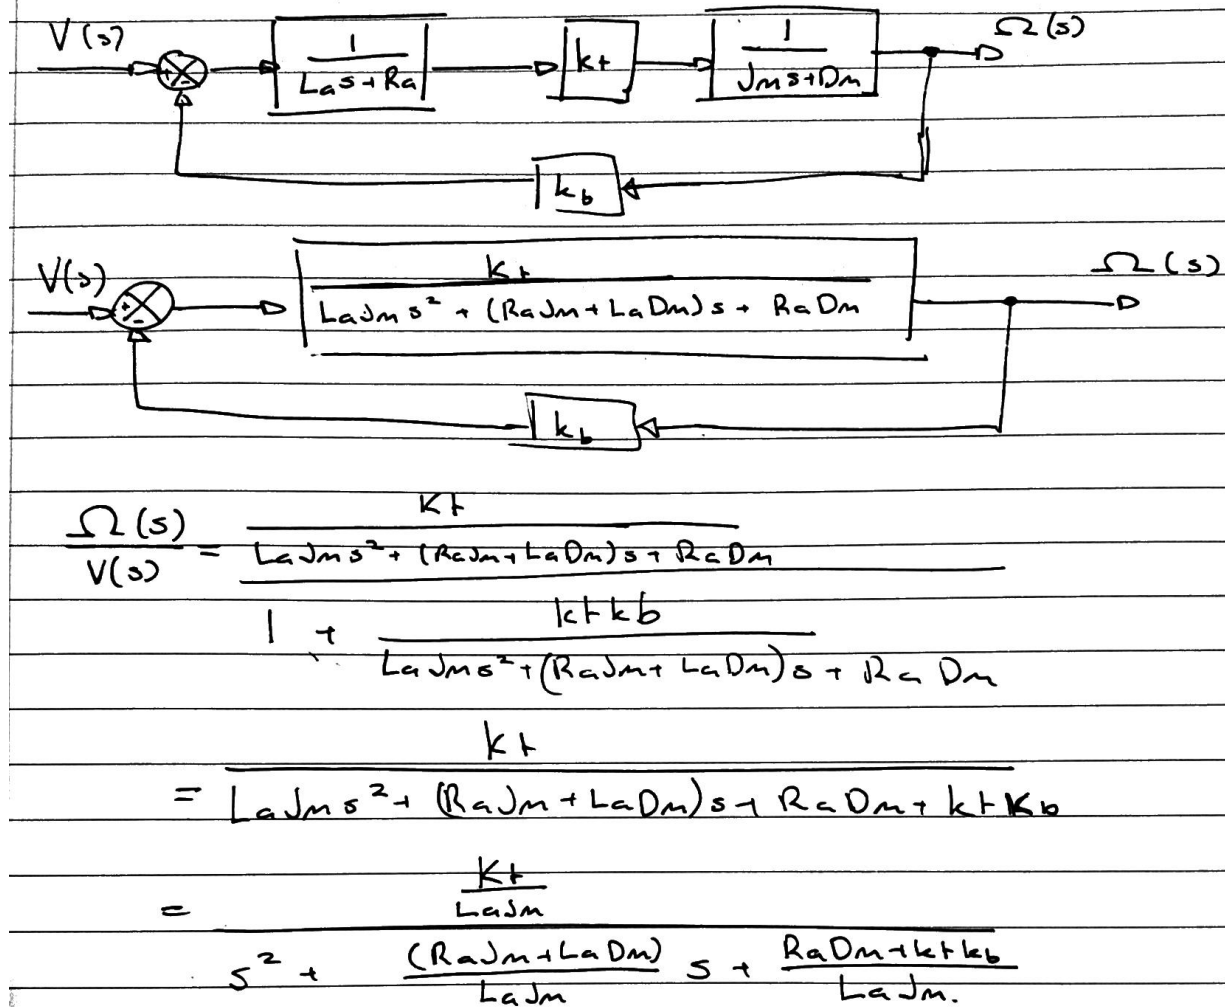 V(s) + - 1/(Las+Ra) kt 1/(Jms+Dm) Ω(s)
kb
V(s) + - Kt/(LaJms² + (RaJm+LaDm)s + RaDm) Ω(s)
kb
Ω(s)/V(s) = Kt/(LaJms² + (RaJm+LaDm)s + RaDm)
1 + ktkb/(LaJms² + (RaJm+LaDm)s + RaDm)
= kt/(LaJms² + (RaJm+LaDm)s + RaDm + ktKb)
= Kt/LaJm
s² + (RaJm+LaDm)/LaJm s + RaDm+ktkb/LaJm.